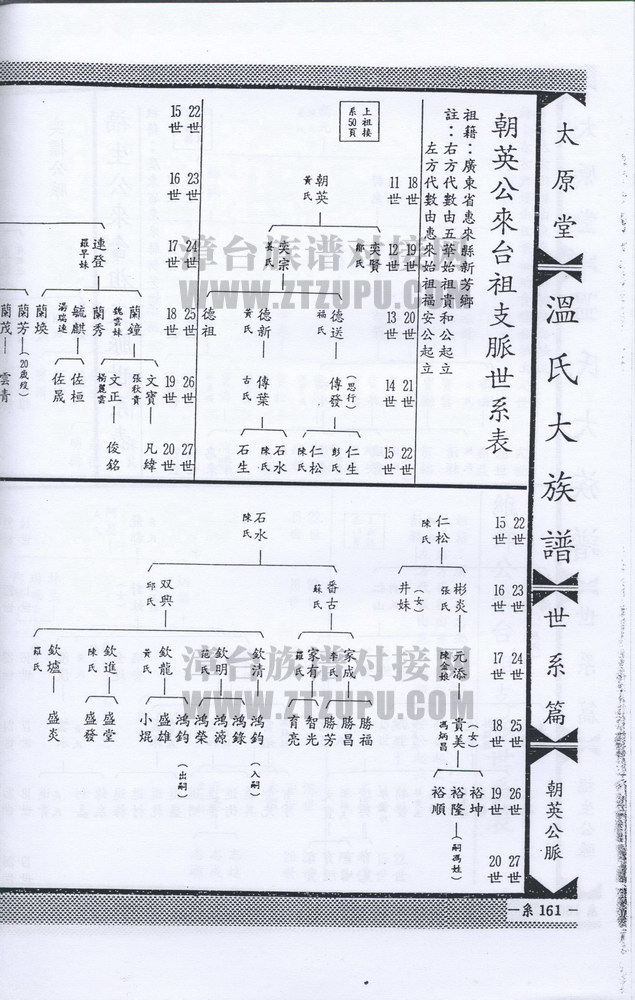 太原堂
溫氏大族譜
世系篇
朝英公脈
朝英公來台祖支脈世系表
祖籍：廣東省惠來縣新芳鄉
註：右方代數由五華始祖貴和公起立
左方代數由惠來始祖福安公起立
上祖接
系50頁
18世 11世
19世 12世
20世 13世
21世 14世
22世 15世
朝英
黃氏
奕賢
鄒氏
奕宗
德送
德新
黃氏
德祖
傳發
(思行)
傳葉
古氏
仁生
彭氏
仁松
陳氏
石水
陳氏
石生
22世 15世
23世 16世
24世 17世
25世 18世
26世 19世
27世 20世
連登
羅早妹
蘭鐘
魏雲妹
蘭秀
毓麒
蘭煥
蘭芳
(20歲歿)
蘭茂
文寶
張秋貴
文正
楊麗雲
佐桓
佐晟
雲青
凡緯
俊銘
22世 15世
23世 16世
24世 17世
25世 18世
26世 19世
27世 20世
仁松
陳氏
彬炎
張氏
井妹
(女)
元添
陳金娘
貴美
(女)
馮炳昌
裕坤
裕隆
(嗣馮姓)
裕順
石水
陳氏
番古
蘇氏
双興
邱氏
家成
李氏
家有
羅氏
勝福
勝昌
勝芳
智光
育亮
欽清
欽明
范氏
欽龍
黃氏
欽進
陳氏
欽爐
羅氏
鴻鈞
(入嗣)
鴻錄
鴻源
鴻榮
鴻鈞
(出嗣)
盛雄
小焜
盛堂
盛發
盛炎
系 161
漳台族谱对接网
WWW.ZTZUPU.COM
漳台族谱对接网
WWW.ZTZUPU.COM